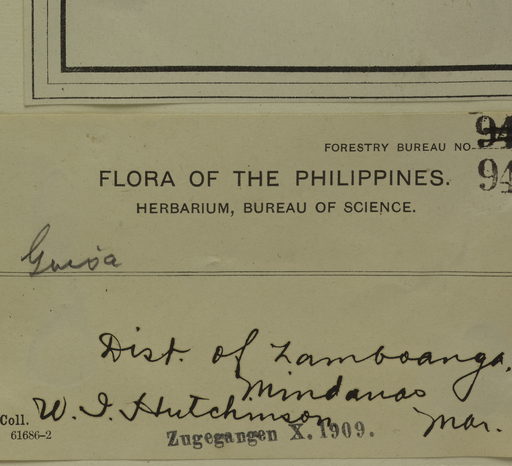 FORESTRY BUREAU NO. 94
94
FLORA OF THE PHILIPPINES.
HERBARIUM, BUREAU OF SCIENCE.
Guioa
Dist. of Zamboanga,
Mindanao
Coll. W. I. Hutchinson, Mar.
61686–2
Zugegangen X. 1909.